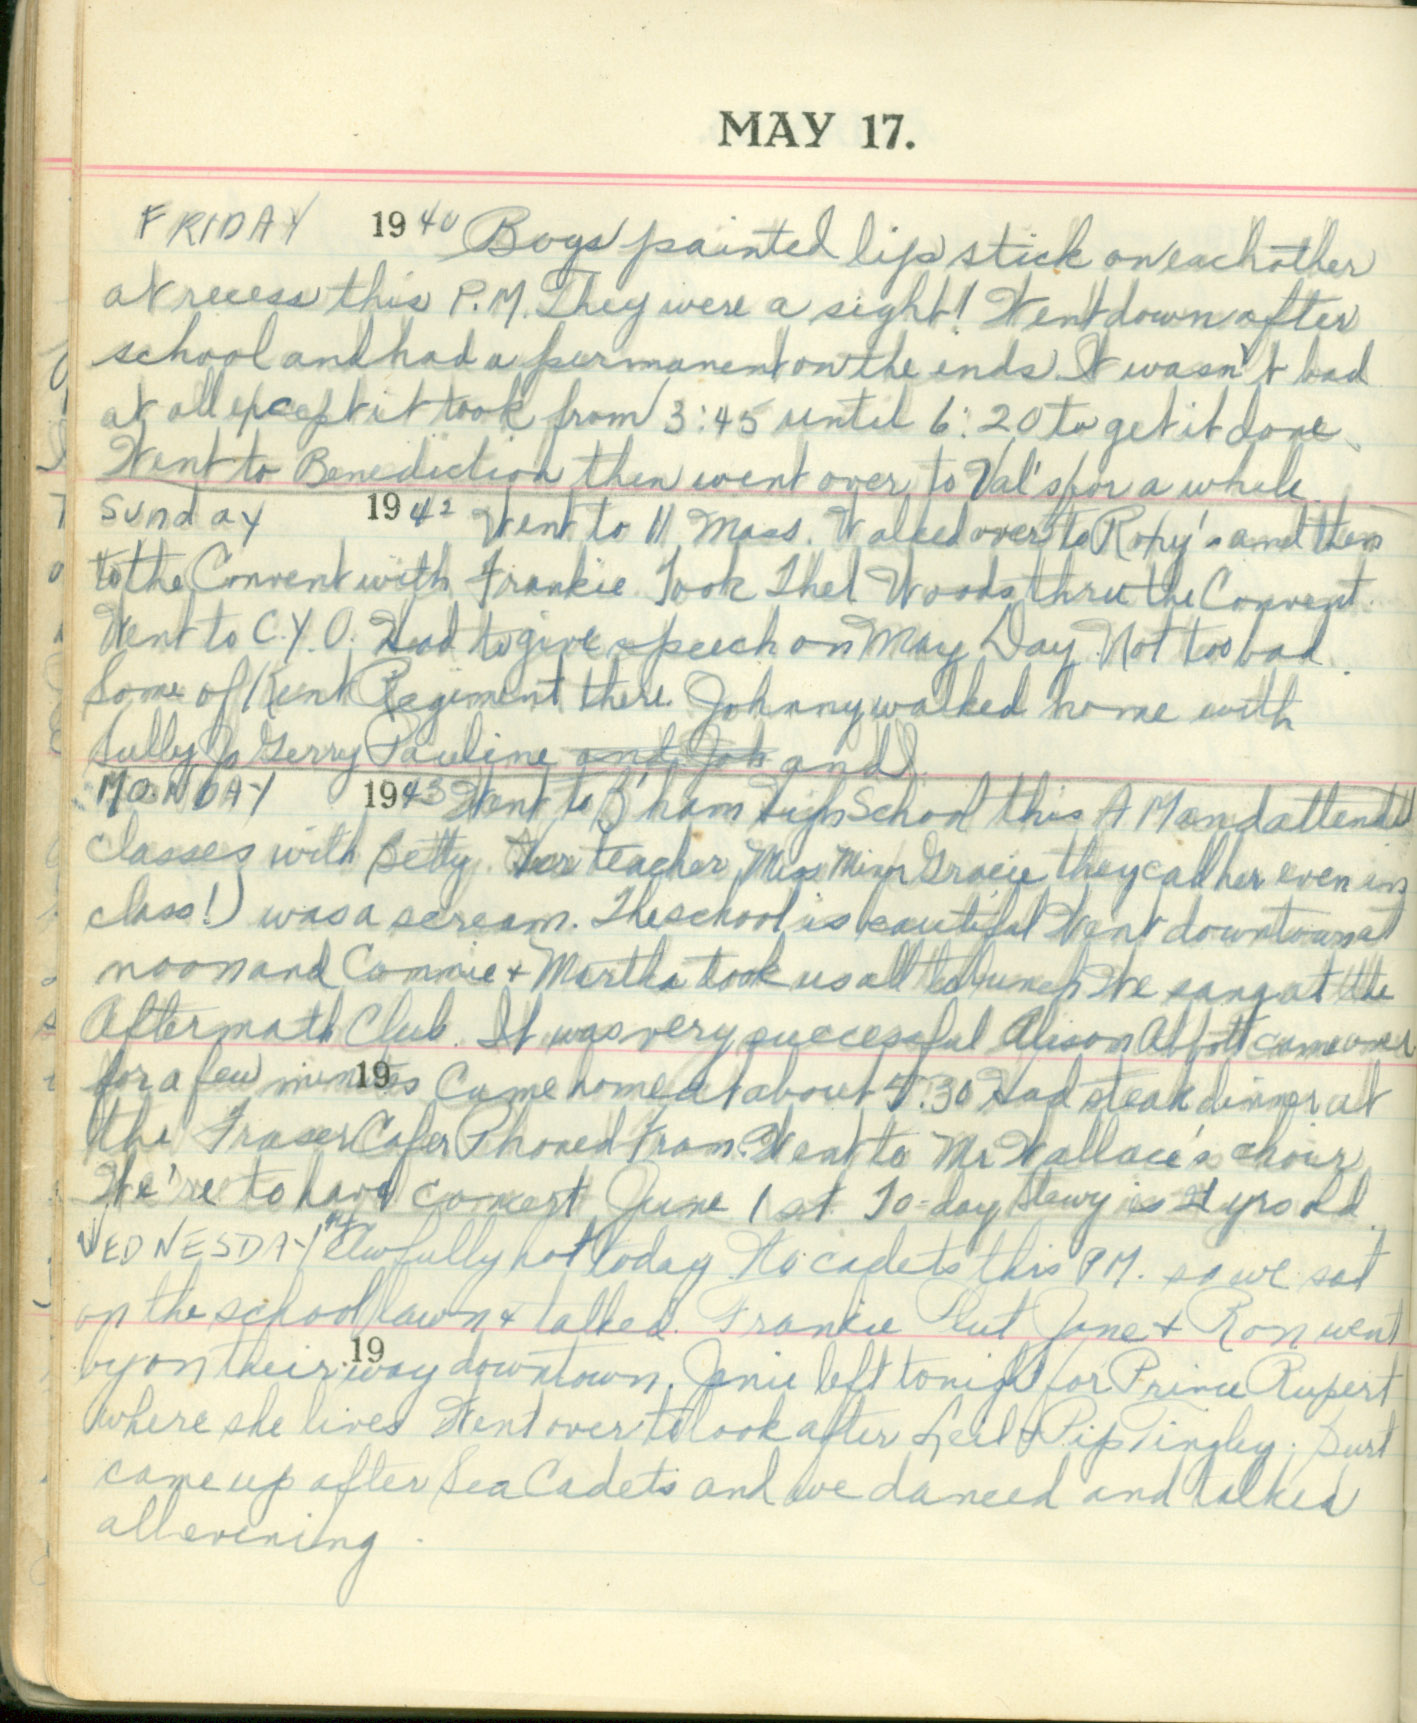 MAY 17.
FRIDAY 1940 Boys painted lipstick on each other
at recess this P.M. They were a sight! Went down after
school and had a permanent on the ends. It wasn't bad
at all except it took from 3:45 until 6:20 to get it done.
Went to Benediction then went over to Val's for a while.
Sunday 1942 Went to 11 Mass. Walked over to Roxy's and then
to the Convent with Frankie. Took Thel Woods thru the Convent.
Went to C.Y.O. Had to give speech on May Day. Not too bad.
Some of Kent Regiment there. Johnny walked home with
Sully Jo Gerry Pauline and Joh and I.
MONDAY 1943 Went to B'ham High School this A.M and attended
classes with Betty. Her teacher Miss Gracie they call her even in
class!) was a scream. The school is beautiful Went downtown at
noon and Cammie + Martha took us all to lunch We sang at the
Aftermath Club. It was very successful Alison Abbott came over
for a few minutes 19 Came home at about 5:30 Had steak dinner at
the Fraser Cafe Phoned from. Went to Mr Wallace's choir
We're to have concert June 1st. To-day is 21 yrs old.
WEDNESDAY Awfully hot today No cadets this PM. so we sat
on the school lawn + talked. Frankie Jane + Ron went
by on their 19 way downtown. Janie left tonight for Prince Rupert
where she lives Went over to look after & Pip Tingley. Burt
came up after Sea Cadets and we danced and talked
all evening.